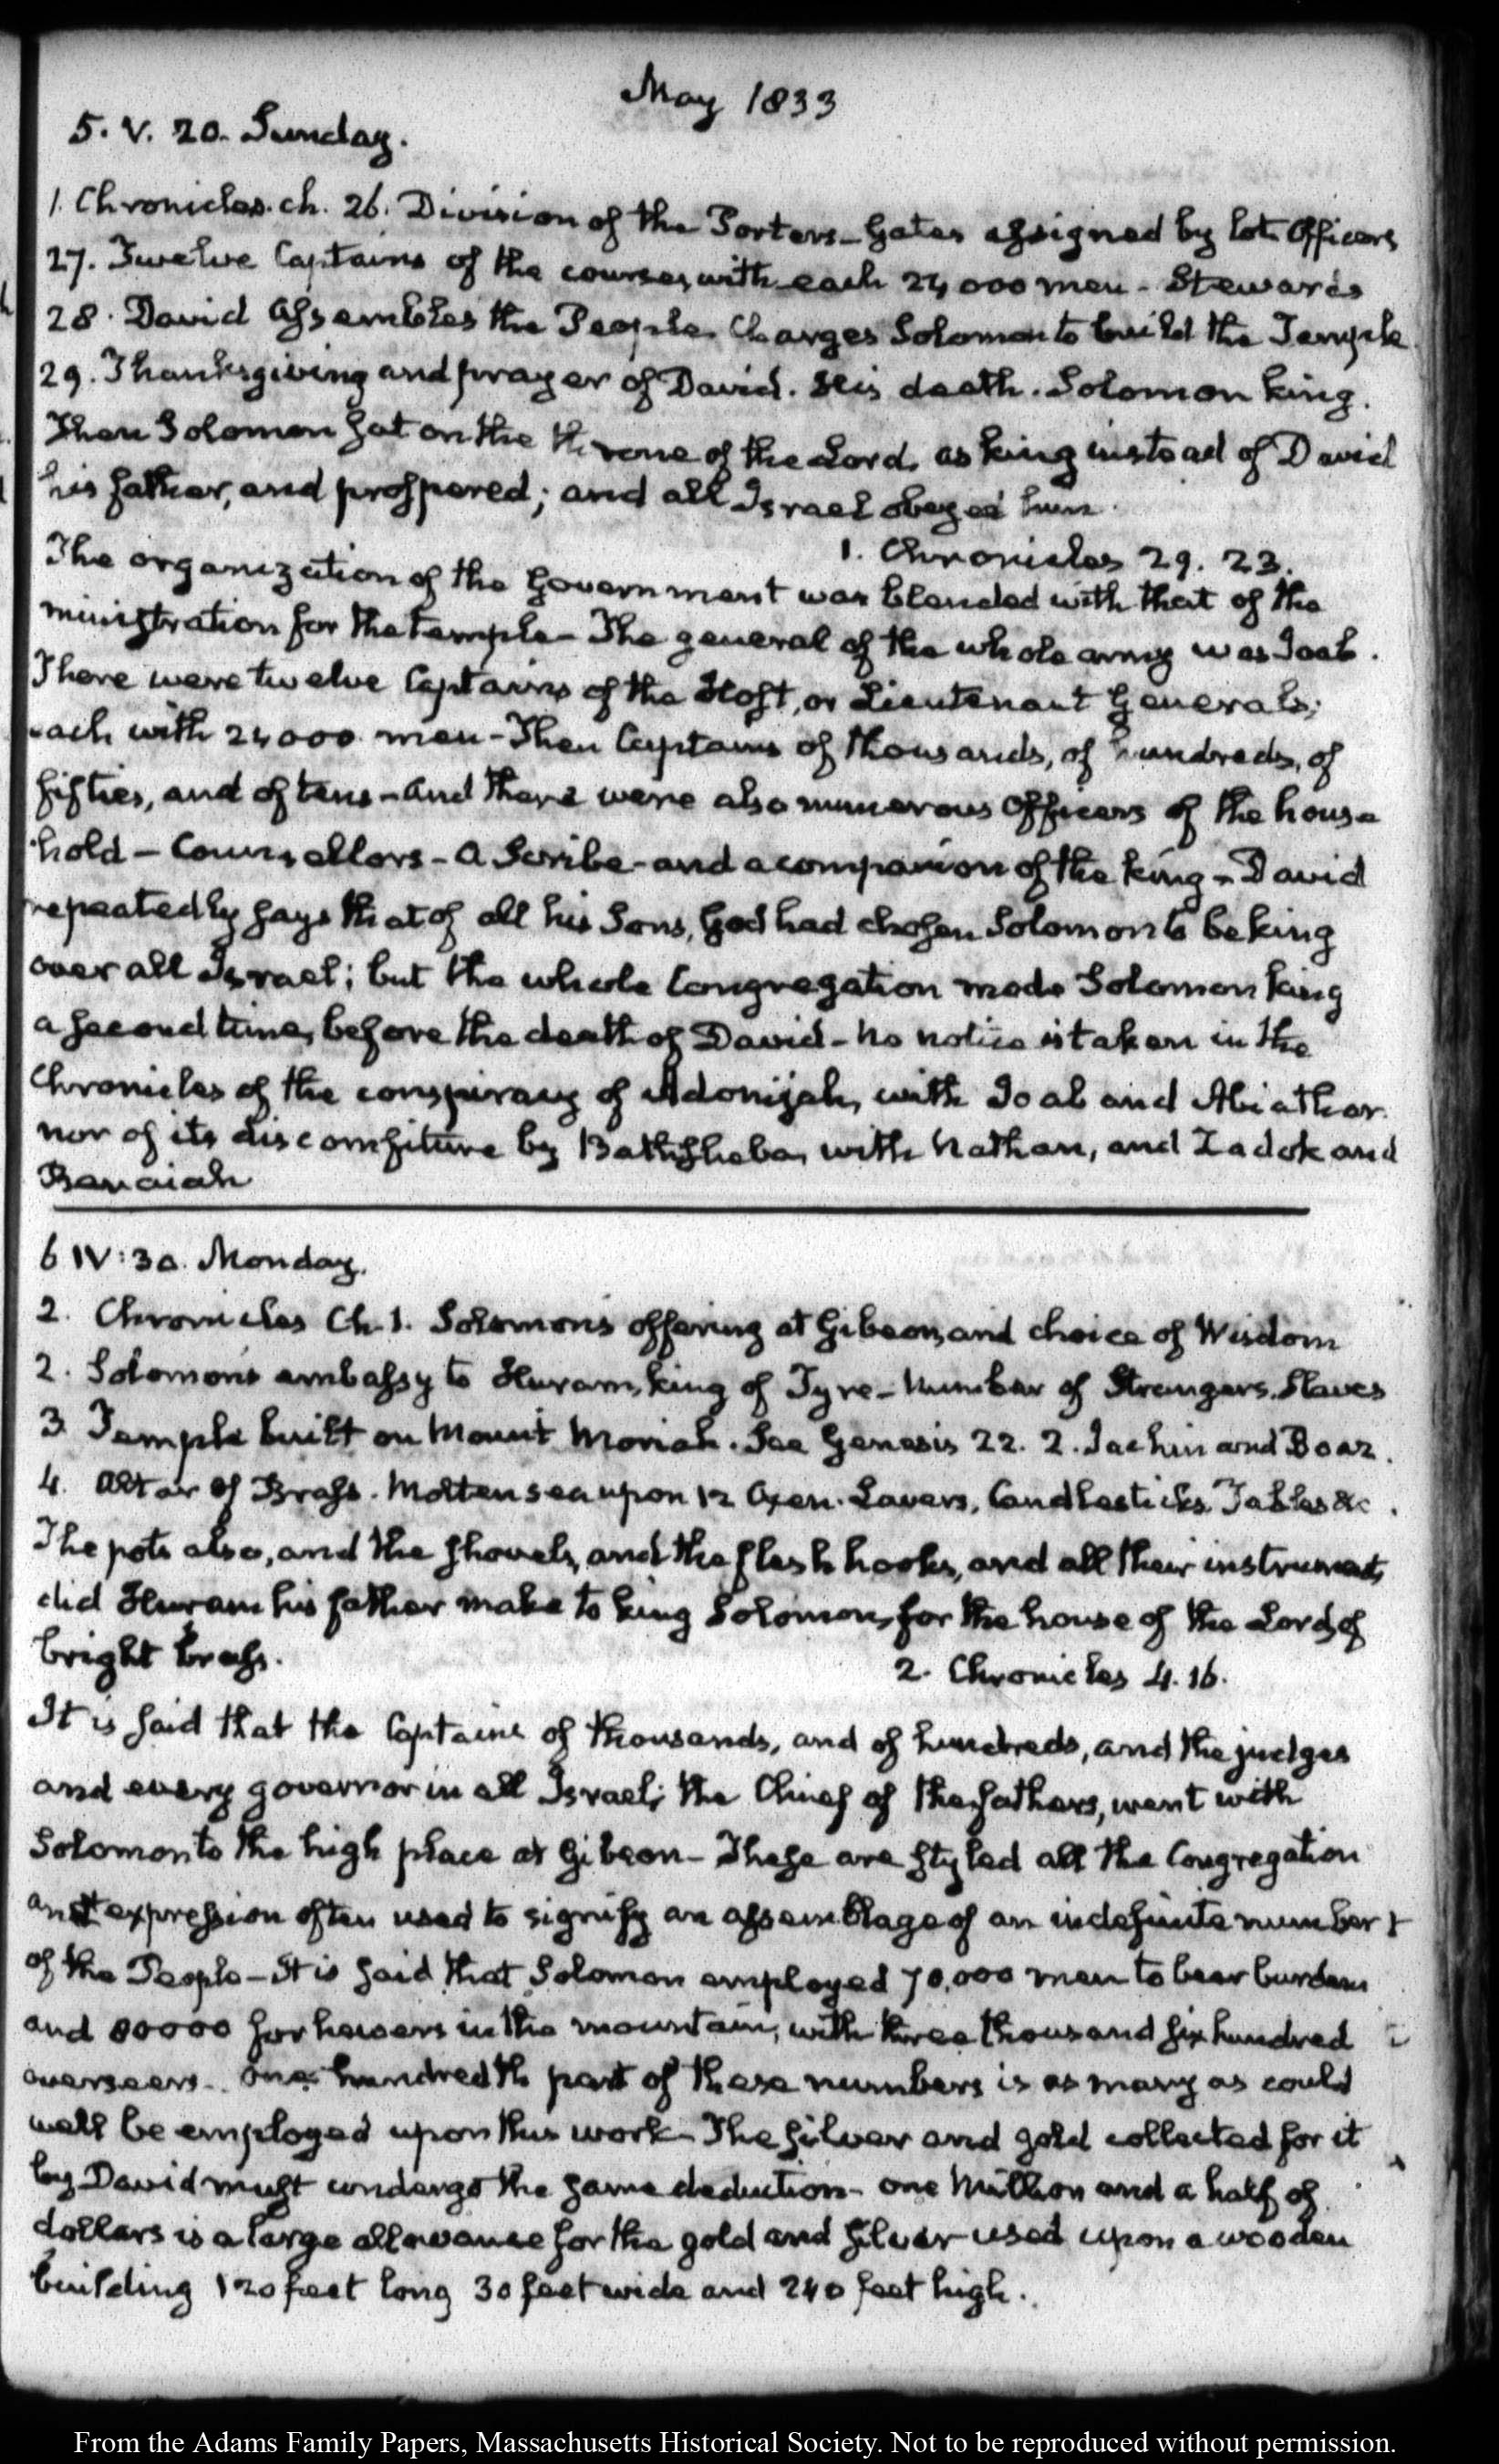 May 1833
5. V. 20. Sunday.
1. Chronicles. ch. 26. Division of the Porters – Gates assigned by lot. Officers
27. Twelve Captains of the courses, with each 24000 men – Stewards
28. David assembles the People. Charges Solomon to build the Temple
29. Thanksgiving and prayer of David. His death. Solomon king.
Then Solomon sat on the throne of the Lord, as king instead of David
his father, and prospered; and all Israel obeyed him.
1. Chronicles 29. 23.
The organization of the Government was blended with that of the
ministration for the temple – The general of the whole army was Joab.
There were twelve Captains of the Host, or Lieutenant Generals;
each with 24000 men – Then Captains of thousands, of hundreds, of
fifties, and of tens – and there were also numerous Officers of the house
hold – Counsellors – a Scribe – and a companion of the king – David
repeatedly says that of all his Sons, God had chosen Solomon to be king
over all Israel; but the whole Congregation made Solomon king
a second time, before the death of David – No notice is taken in the
Chronicles of the conspiracy of Adonijah, with Joab and Abiathar
nor of its discomfiture by Bathsheba, with Nathan, and Zadok and
Benaiah
6 IV:30. Monday.
2. Chronicles Ch. 1. Solomon's offering at Gibeon, and choice of Wisdom
2. Solomon's embassy to Huram, king of Tyre – Number of Strangers. Slaves
3. Temple built on Mount Moriah. See Genesis 22. 2. Jachin and Boaz.
4. Altar of Brass. Molten sea upon 12 Oxen. Lavers, Candlesticks. Tables &c.
The pots also, and the shovels, and the flesh hooks, and all their instruments,
did Huram his father make to king Solomon, for the house of the Lord, of
bright brass.
2. Chronicles 4. 16.
It is said that the Captains of thousands, and of hundreds, and the judges
and every governor in all Israel; the Chief of the fathers, went with
Solomon to the high place at Gibeon – These are styled all the Congregation
an expression often used to signify an assemblage of an indefinite number
of the People – It is said that Solomon employed 70,000 men to bear burdens
and 80000 for hewers in the mountain, with three thousand six hundred
overseers – One hundredth part of these numbers is as many as could
well be employed upon this work – The silver and gold collected for it
by David must undergo the same deduction – one Million and a half of
dollars is a large allowance for the gold and silver used upon a wooden
building 120 feet long 30 feet wide and 240 feet high.
From the Adams Family Papers, Massachusetts Historical Society. Not to be reproduced without permission.